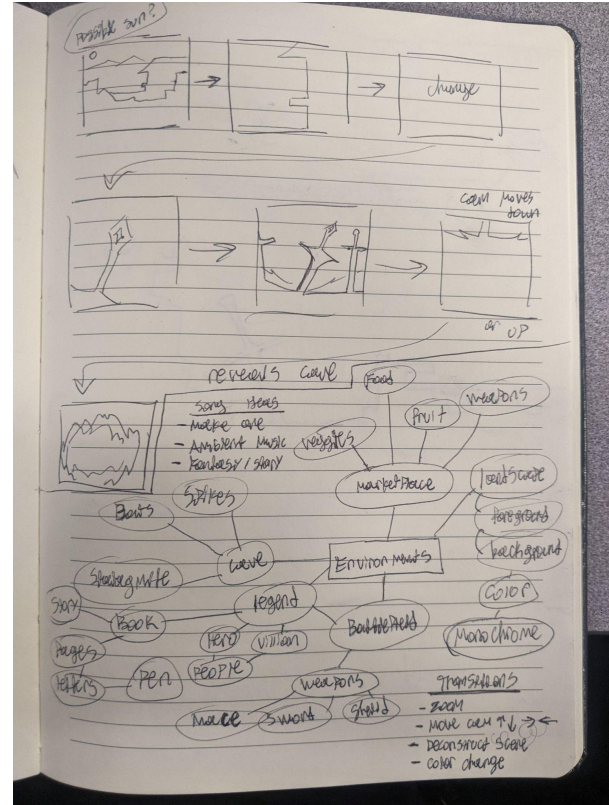 Possible sun?
change
cam moves
down
or UP
reveals cave
Song Ideas
- Make one
- Ambient Music
- Fantasy/story
Food
Fruit
weapons
veggies
Marketplace
landscape
foreground
background
Color
Monochrome
Bats
Spikes
cave
Stalagmite
Environments
legend
Hero
Villian
People
Book
Story
Pages
letters
Pen
Battlefield
weapons
Mace
Sword
Shield
Transitions
- zoom
- Move cam ↑↓→←
- Deconstruct Scene
- Color change